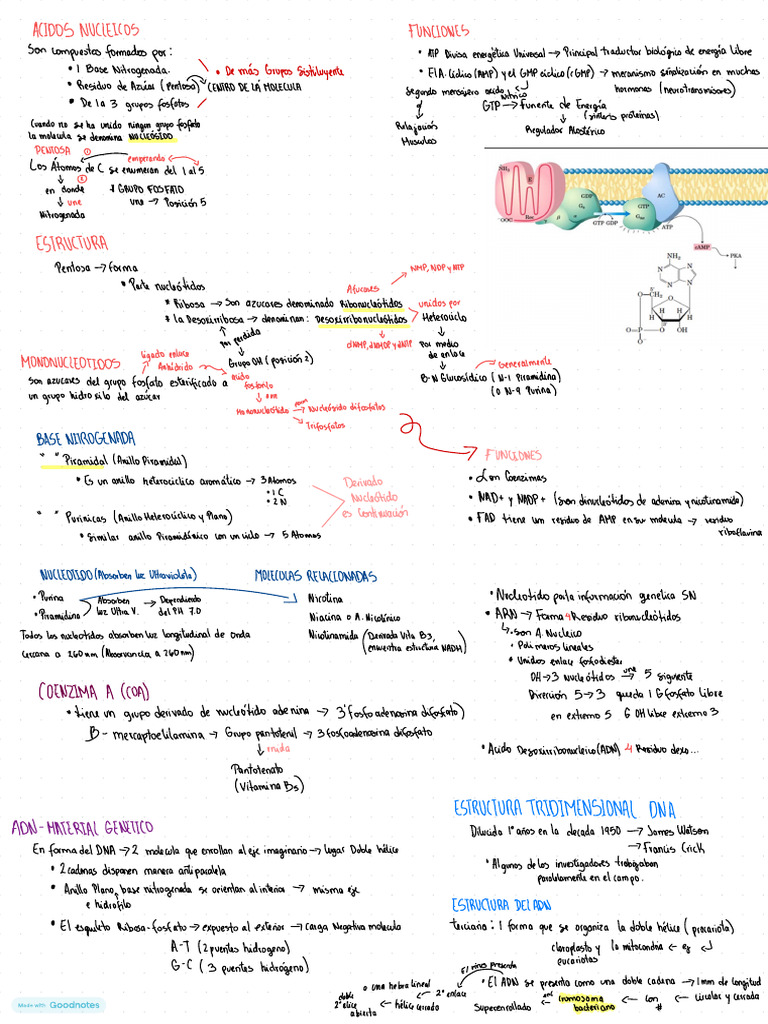 ACIDOS NUCLEICOS
Son compuestos formados por:
• 1 Base Nitrogenada.
• Residuo de Azúcar (Pentosa)
• De 1 a 3 grupos fosfatos
• De más Grupos Sistituyente
CENTRO DE LA MOLECULA
Cuando no se ha unido ningun grupo fosfato
la molecula se denomina NUCLEÓSIDO
PENTOSA ①
empezando
Los Átomos de C se enumeran del 1 al 5
②
en donde
GRUPO FOSFATO
une
une → Posición 5
Nitrogenada
FUNCIONES
• ATP Divisa energética Universal → Principal traductor biológico de energía Libre
• El A. Cíclico (AMP) y el GMP cíclico (cGMP) → mecanismo señalización en muchas
hormonas (neurotransmisores)
Segundo mensajero acido Nitrico
GTP → Funente de Energía
(sintesis proteinas)
Relajación
Musculos
Regulador Alostérico
NH₃
E
OOC
Rec
GDP
Gα
GTP GDP
GTP
Gsα
AC
ATP
cAMP
PKA
NH₂
N
N
N
N
5'
O—CH₂
O
H
H
H
H
3'
O=P
O
OH
O⁻
ESTRUCTURA
Pentosa → Forma
• Parte nucleótidos
Afucares
NMP, NDP y NTP
* Ribosa → Son azucares denominado Ribonucleótidos
unidos por
* la Desoxirribosa → denominan: Desoxirribonucleótidos
Heterociclo
por perdida
Grupo OH (posición 2)
dNMP, dNDP y dNTP
Por medio
de enlace
Generalmente
B-N Glucosídico (N-1 Piramidina)
(O N-9 Purina)
MONONUCLEOTIDOS
ligado enlace
Anhidrido
Son azucares del grupo fosfato esterificado a
un grupo hidroxilo del azúcar
acido
fosforico
son
Mononucleótido
→ Nucleósido difosfatos
→ Trifosfatos
BASE NITROGENADA
" " Piramidal (Anillo Piramidal)
• Es un anillo heterociclico aromático → 3 Atomos
• 1 C
• 2 N
" " Purinicas (Anillo Heterocíclico y Plano)
• Similar anillo Piramidínico con un ciclo → 5 Atomos
Derivado
Nucleótido
es Continuación
FUNCIONES
• Son Coenzimas
• NAD+ y NADP+ (son dinucleótidos de adenina y nicotinamida)
• FAD tiene un residuo de AMP en su molecula → residuo
riboflavina
NUCLEOTIDO (Absorben luz Ultravioleta)
• Purina
• Piramidina
Absorben
luz Ultra V.
→ Dependiendo
del PH 7.0
Todos los nucleotidos absorben luz longitudinal de onda
cercana a 260nm (Absorvancia A 260nm)
MOLECOLAS RELACIONADAS
Nicotina
Niacina o A. Nicotínico
Nicotinamida (Derivada Vita B3,
encuentra estructura NADH)
• Nucleotido porta informacion genetica SN
• ARN → Forma 4 Residuo ribonucleótidos
↳ Son A. Nucleico
• Polimeros lineales
• Unidos enlace fosfodiester
OH → 3 Nucleótidos une → 5 siguiente
Dirección 5 → 3 queda 1 G fosfato libre
en extremo 5 G OH libre extremo 3
• Acido Desoxirribonucleico (ADN) 4 Residuo dexo...
COENZIMA A (COA)
• tiene un grupo derivado de nucleótido adenina → 3' fosfo adenosina difosfato)
B- mercaptoetilamina → Grupo pantotenil → 3 fosfoadenosina difosfato
unida
Pantotenato
(Vitamina B5)
ADN-MATERIAL GENETICO
En forma del DNA → 2 molecula que enrollan al eje imaginario → lugar Doble hélice
• 2 cadenas disponen manera antiparalela
• Anillo Plano, base nitrogenada se orientan al interior → misma eje
e hidrofilo
• El esqueleto Ribosa-Fosfato → expuesto al exterior → Carga Negativa molecula
A-T (2 puentes hidrogeno)
G-C (3 puentes hidrógeno)
ESTRUCTURA TRIDIMENSIONAL DNA
Dilucido 1º años en la decada 1950 → James Watson
→ Francis Crick
• Algunos de los investigadores trabajaban
paralelamente en el campo.
ESTRUCTURA DEL ADN
terciaria: 1 forma que se organiza la doble hélice (procariota)
cloroplasto y la mitocondria ← ej
eucariotas
• El ADN se presenta como una doble cadena → 1mm de longitud
circular y cerrada
con
#
cromosoma
bacteriano
Superenrollado
2º enlace
o una hebra lineal
hélice cerrada
doble
2º elice
abierta
Made with Goodnotes